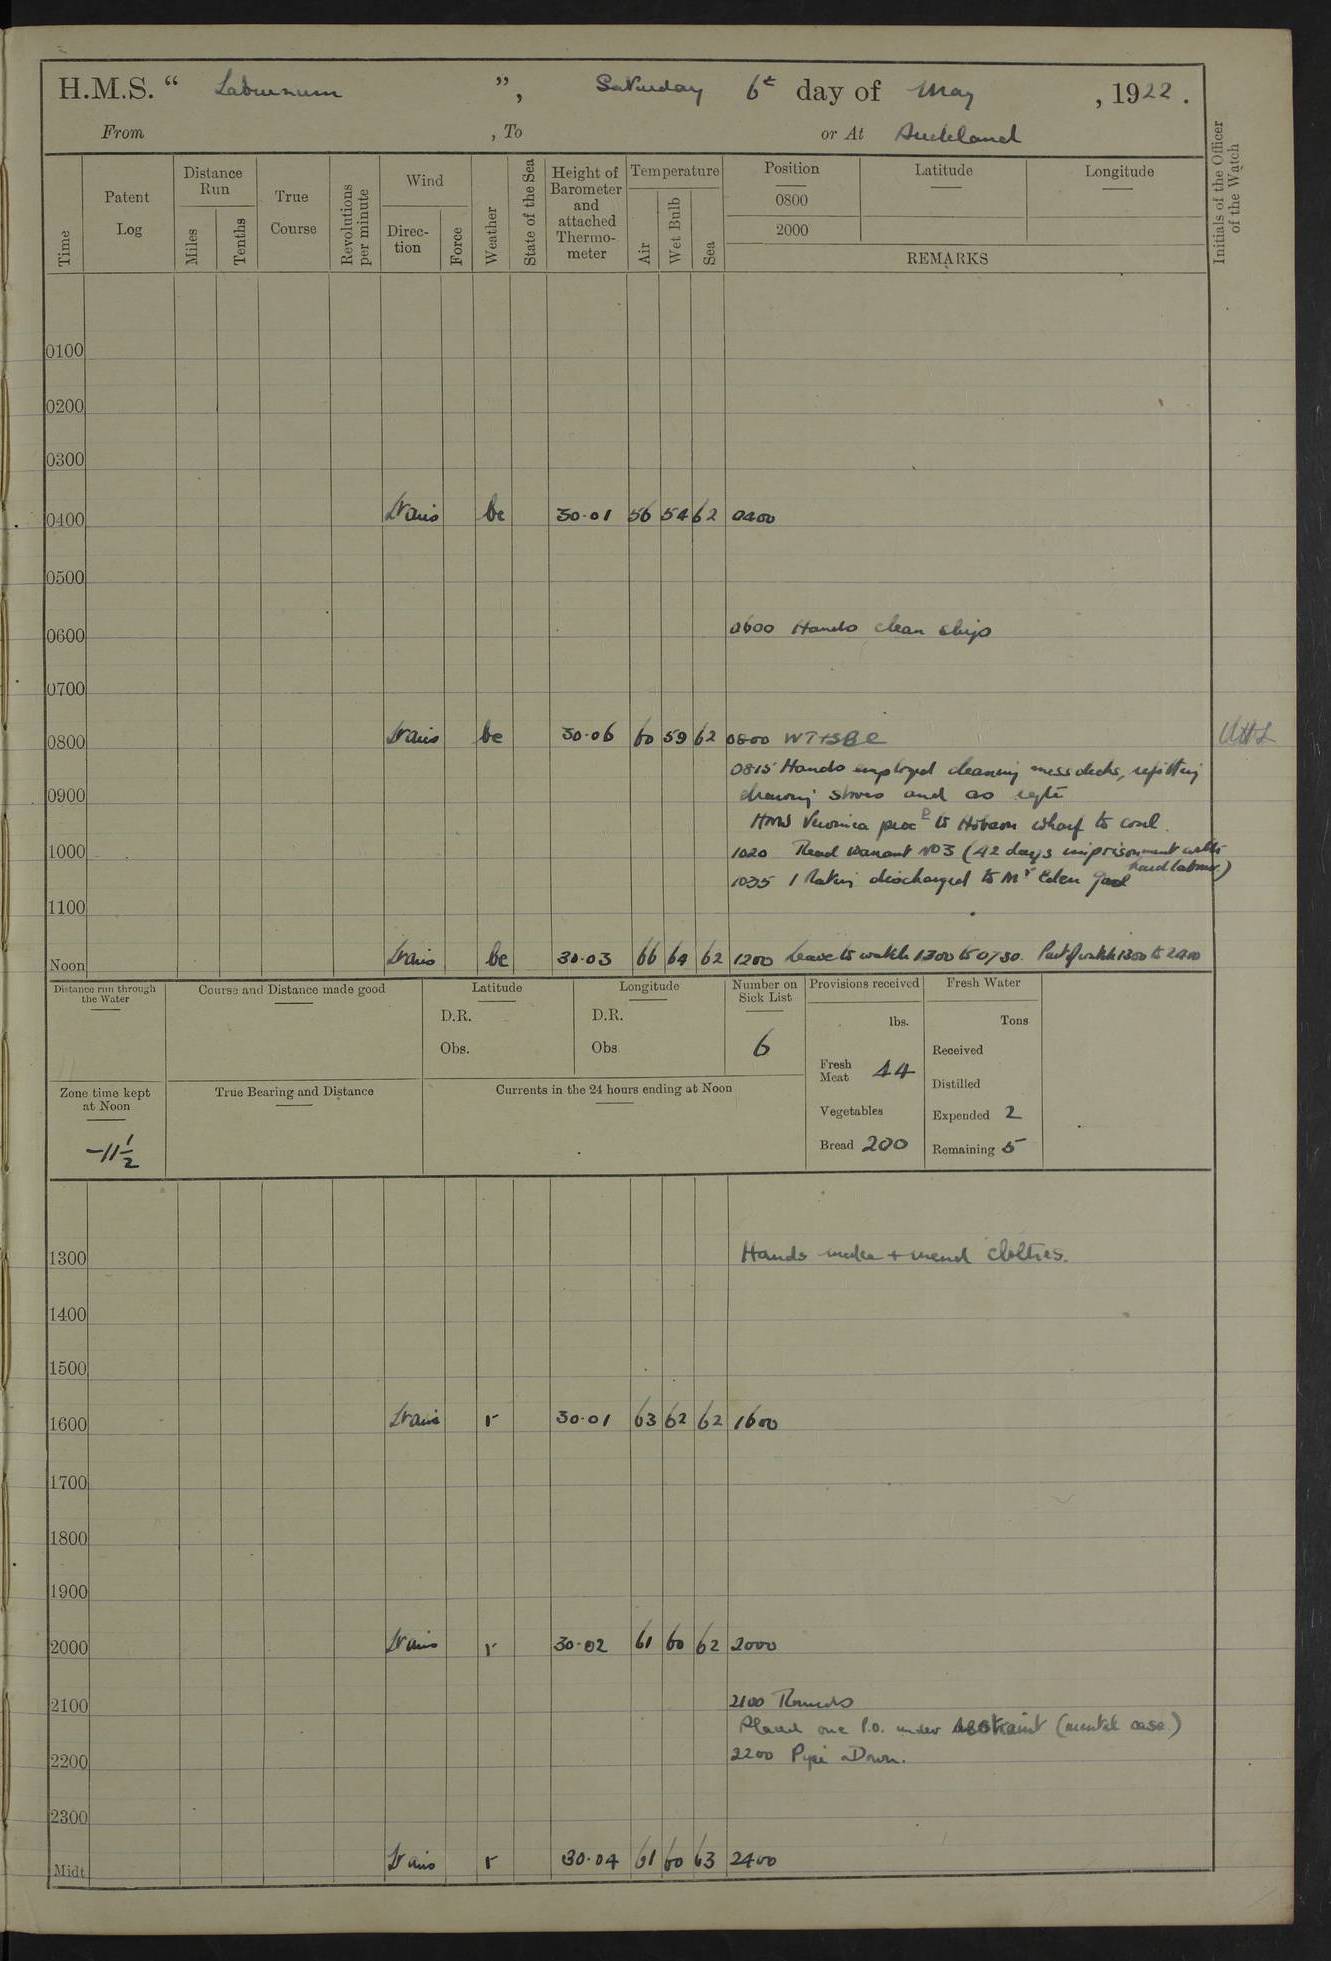 H.M.S. “ Laburnum ”, Saturday 6th day of May, 1922.
From , To or At Auckland
Time
Patent Log
Distance Run
Miles
Tenths
True Course
Revolutions per minute
Wind
Direction
Force
Weather
State of the Sea
Height of Barometer and attached Thermometer
Temperature
Air
Wet Bulb
Sea
Position
0800
2000
Latitude
Longitude
REMARKS
Initials of the Officer of the Watch
0100
0200
0300
0400 bc 30·01 56 54 62 0400
0500
0600 0600 Hands clean ship
0700
0800 bc 30·06 60 59 62 0800
0815 Hands employed cleaning mess decks, refitting
0900 stores and as reqte
HMS Veronica procd to Hobson wharf to coal.
1000 1020 Read Warrant No 3 (42 days imprisonment with hard labour)
1035 1 Rating discharged to Mt Eden Gaol
1100
Noon bc 30·03 66 64 62 1200 Leave to watch 1300 to 0730. Part of watch 1300 to 2400
Distance run through the Water
Course and Distance made good
Latitude
D.R.
Obs.
Longitude
D.R.
Obs
Number on Sick List
6
Provisions received
lbs.
Fresh Meat 44
Vegetables
Bread 200
Fresh Water
Tons
Received
Distilled
Expended 2
Remaining 5
Zone time kept at Noon
-11½
True Bearing and Distance
Currents in the 24 hours ending at Noon
1300 Hands make + mend clothes.
1400
1500
1600 r 30·01 63 62 62 1600
1700
1800
1900
2000 r 30·02 61 60 62 2000
2100 2100 Rounds
Placed one P.O. under restraint (mental case)
2200 2200 Pipe Down.
2300
Midt r 30·04 61 60 63 2400